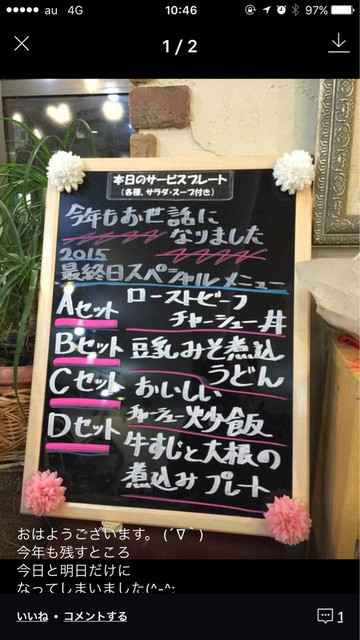 au 4G 10:46 97%
1 / 2
本日のサービスプレート
(各種、サラダ・スープ付き)
今年もお世話に
なりました
2015
最終日スペシャルメニュー
Aセット ローストビーフ
チャーシュー丼
Bセット 豆乳みそ煮込
うどん
Cセット おいしい
チャーシュー炒飯
Dセット 牛すじと大根の
煮込みプレート
おはようございます。(´∇`)
今年も残すところ
今日と明日だけに
なってしまいました(^-^;
いいね • コメントする 1